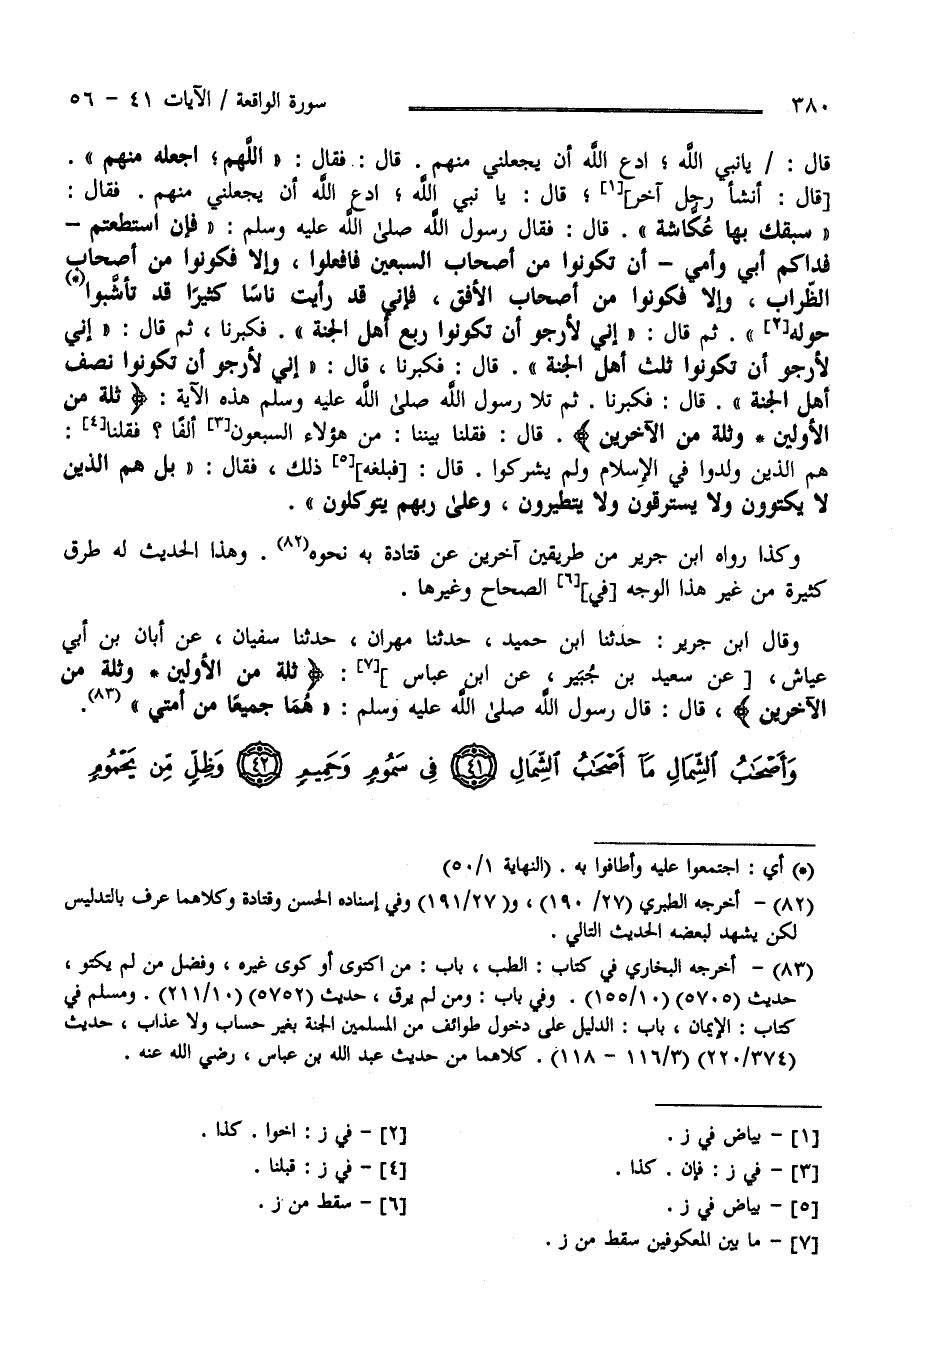 ٣٨٠ سورة الواقعة / الآيات ٤١ - ٥٦
قال : / يانبي اللَّه ؛ ادع اللَّه أن يجعلني منهم . قال : فقال : « اللَّهم ؛ اجعله منهم » .
[قال : أنشأ رجل آخر][١] ؛ قال : يا نبي اللَّه ؛ ادع اللَّه أن يجعلني منهم . فقال :
« سبقك بها عُكَّاشة » . قال : فقال رسول اللَّه صلىٰ اللَّه عليه وسلم : « فإن استطعتم -
فداكم أبي وأمي - أن تكونوا من أصحاب السبعين فافعلوا ، وإلا فكونوا من أصحاب
الظِّراب ، وإلا فكونوا من أصحاب الأفق ، فإني قد رأيت ناسًا كثيرًا قد تأشَّبوا(*)
حوله[٢] » . ثم قال : « إني لأرجو أن تكونوا ربع أهل الجنة » . فكبرنا ، ثم قال : « إني
لأرجو أن تكونوا ثلث أهل الجنة » . قال : فكبرنا ، قال : « إني لأرجو أن تكونوا نصف
أهل الجنة » . قال : فكبرنا . ثم تلا رسول اللَّه صلىٰ اللَّه عليه وسلم هذه الآية : ﴿ ثلة من
الأولين * وثلة من الآخرين ﴾ . قال : فقلنا بيننا : من هؤلاء السبعون[٣] ألفًا ؟ فقلنا[٤] :
هم الذين ولدوا في الإسلام ولم يشركوا . قال : [فبلغه][٥] ذلك ، فقال : « بل هم الذين
لا يكتوون ولا يسترقون ولا يتطيرون ، وعلىٰ ربهم يتوكلون » .
وكذا رواه ابن جرير من طريقين آخرين عن قتادة به نحوه(٨٢) . وهذا الحديث له طرق
كثيرة من غير هذا الوجه [في][٦] الصحاح وغيرها .
وقال ابن جرير : حدثنا ابن حميد ، حدثنا مهران ، حدثنا سفيان ، عن أبان بن أبي
عياش ، [ عن سعيد بن جُبَير ، عن ابن عباس ][٧] : ﴿ ثلة من الأولين * وثلة من
الآخرين ﴾ ، قال : قال رسول اللَّه صلىٰ اللَّه عليه وسلم : « هُمَا جميعًا من أمتي » (٨٣).
وَأَصْحَٰبُ ٱلشِّمَالِ مَآ أَصْحَٰبُ ٱلشِّمَالِ ٤١ فِى سَمُومٍ وَحَمِيمٍ ٤٢ وَظِلٍّ مِّن يَحْمُومٍ
(*) أي : اجتمعوا عليه وأطافوا به . (النهاية ٥٠/١)
(٨٢) - أخرجه الطبري (٢٧/ ١٩٠) ، و( ١٩١/٢٧) وفي إسناده الحسن وقتادة وكلاهما عرف بالتدليس
لكن يشهد لبعضه الحديث التالي .
(٨٣) - أخرجه البخاري في كتاب : الطب ، باب : من اكتوى أو كوى غيره ، وفضل من لم يكتو ،
حديث (٥٧٠٥) (١٥٥/١٠) . وفي باب : ومن لم يرق ، حديث (٥٧٥٢) (٢١١/١٠) . ومسلم في
كتاب : الإيمان ، باب : الدليل على دخول طوائف من المسلمين الجنة بغير حساب ولا عذاب ، حديث
(٢٢٠/٣٧٤) (١١٦/٣ - ١١٨) . كلاهما من حديث عبد الله بن عباس ، رضي الله عنه .
[١] - بياض في ز . [٢] - في ز : اخوا . كذا .
[٣] - في ز : فإن . كذا . [٤] - في ز : قبلنا .
[٥] - بياض في ز . [٦] - سقط من ز .
[٧] - ما بين المعكوفين سقط من ز .